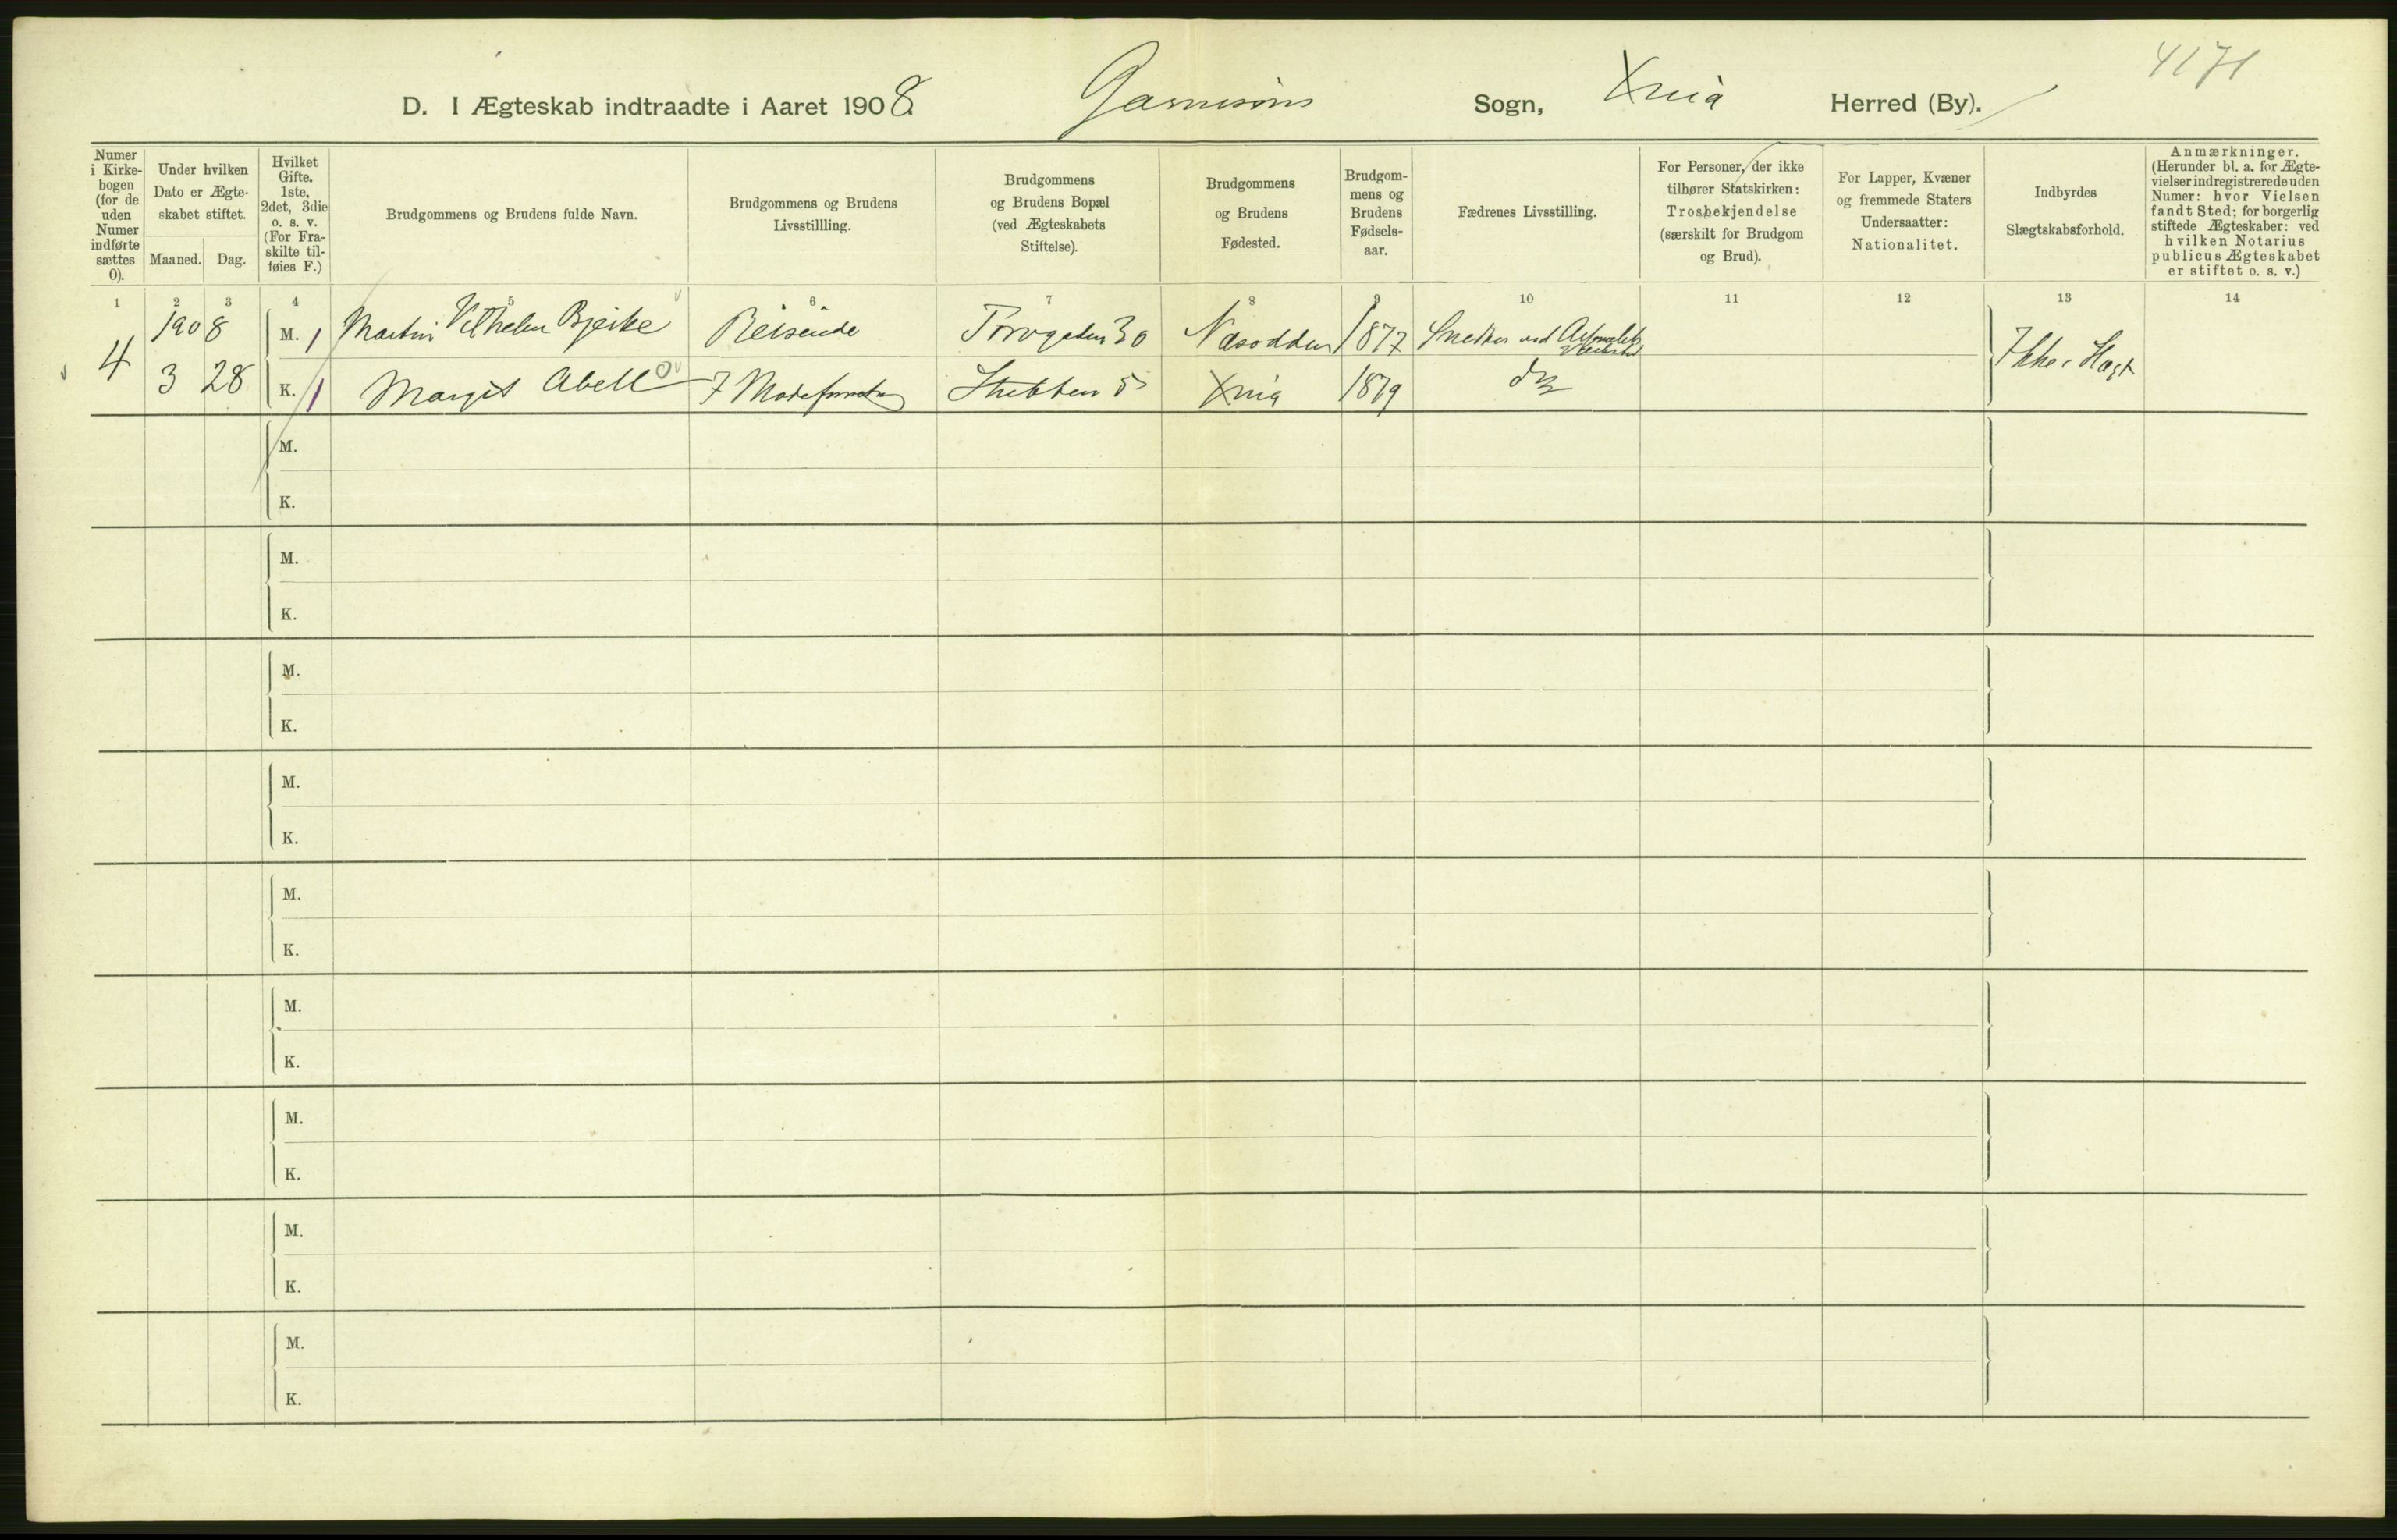 4171
D. I Ægteskab indtraadte i Aaret 1908. Garnisons Sogn, Xnia Herred (By).
Numer
i Kirke-
bogen
(for de
uden
Numer
indførte
sættes
0).
Under hvilken
Dato er Ægte-
skabet stiftet.
Maaned. Dag.
Hvilket
Gifte.
1ste,
2det, 3die
o. s. v.
(For Fra-
skilte til-
føies F.)
Brudgommens og Brudens fulde Navn.
Brudgommens og Brudens
Livsstillling.
Brudgommens
og Brudens Bopæl
(ved Ægteskabets
Stiftelse).
Brudgommens
og Brudens
Fødested.
Brudgom-
mens og
Brudens
Fødsels-
aar.
Fædrenes Livsstilling.
For Personer, der ikke
tilhører Statskirken:
Trosbekjendelse
(særskilt for Brudgom
og Brud).
For Lapper, Kvæner
og fremmede Staters
Undersaatter:
Nationalitet.
Indbyrdes
Slægtskabsforhold.
Anmærkninger.
(Herunder bl. a. for Ægte-
vielser indregistrerede uden
Numer: hvor Vielsen
fandt Sted; for borgerlig
stiftede Ægteskaber: ved
hvilken Notarius
publicus Ægteskabet
er stiftet o. s. v.)
1 2 3 4 5 6 7 8 9 10 11 12 13 14
1908 M. 1 Martin Vilhelm Bjerke Reisende Torvgaden 30 Næsodden 1877 Snedker ved
4 3 28 K. 1 Margit Abell Stubben 5 Xnia 1879 Ikke
M.
K.
M.
K.
M.
K.
M.
K.
M.
K.
M.
K.
M.
K.
M.
K.
M.
K.